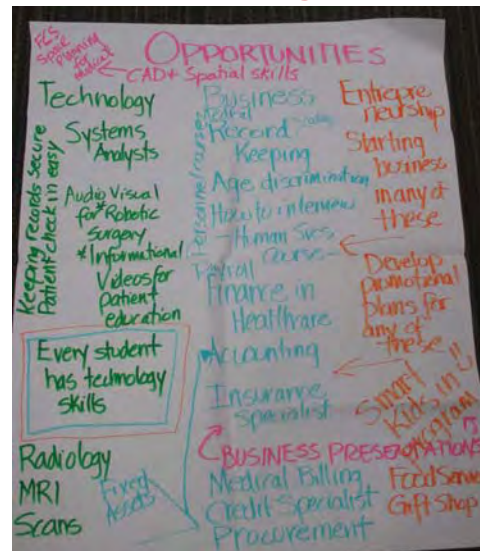 FCS
Space
Planning
for
Medical
OPPORTUNITIES
CAD + Spatial skills
Technology
Systems
Analysts
Keeping records secure
Patient check in easy
Audio Visual
for *Robotic
Surgery
*Informational
Videos for
patient
education
Every student
has technology
skills
Radiology
MRI
Scans
Business
Medical
Record
Keeping
Personnel courses
Age discrimination
How to interview
- Human Svcs
Course -
Finance in
Healthcare
Accounting
Insurance
Specialist
BUSINESS PRESENTATIONS
Medical Billing
Credit Specialist
Procurement
Fixed
Assets
Entrepre
neurship
Starting
business
in any of
these
Develop
promotional
plans for
any of
these
Smart
Kids in
program
Food Serve
Gift Shop